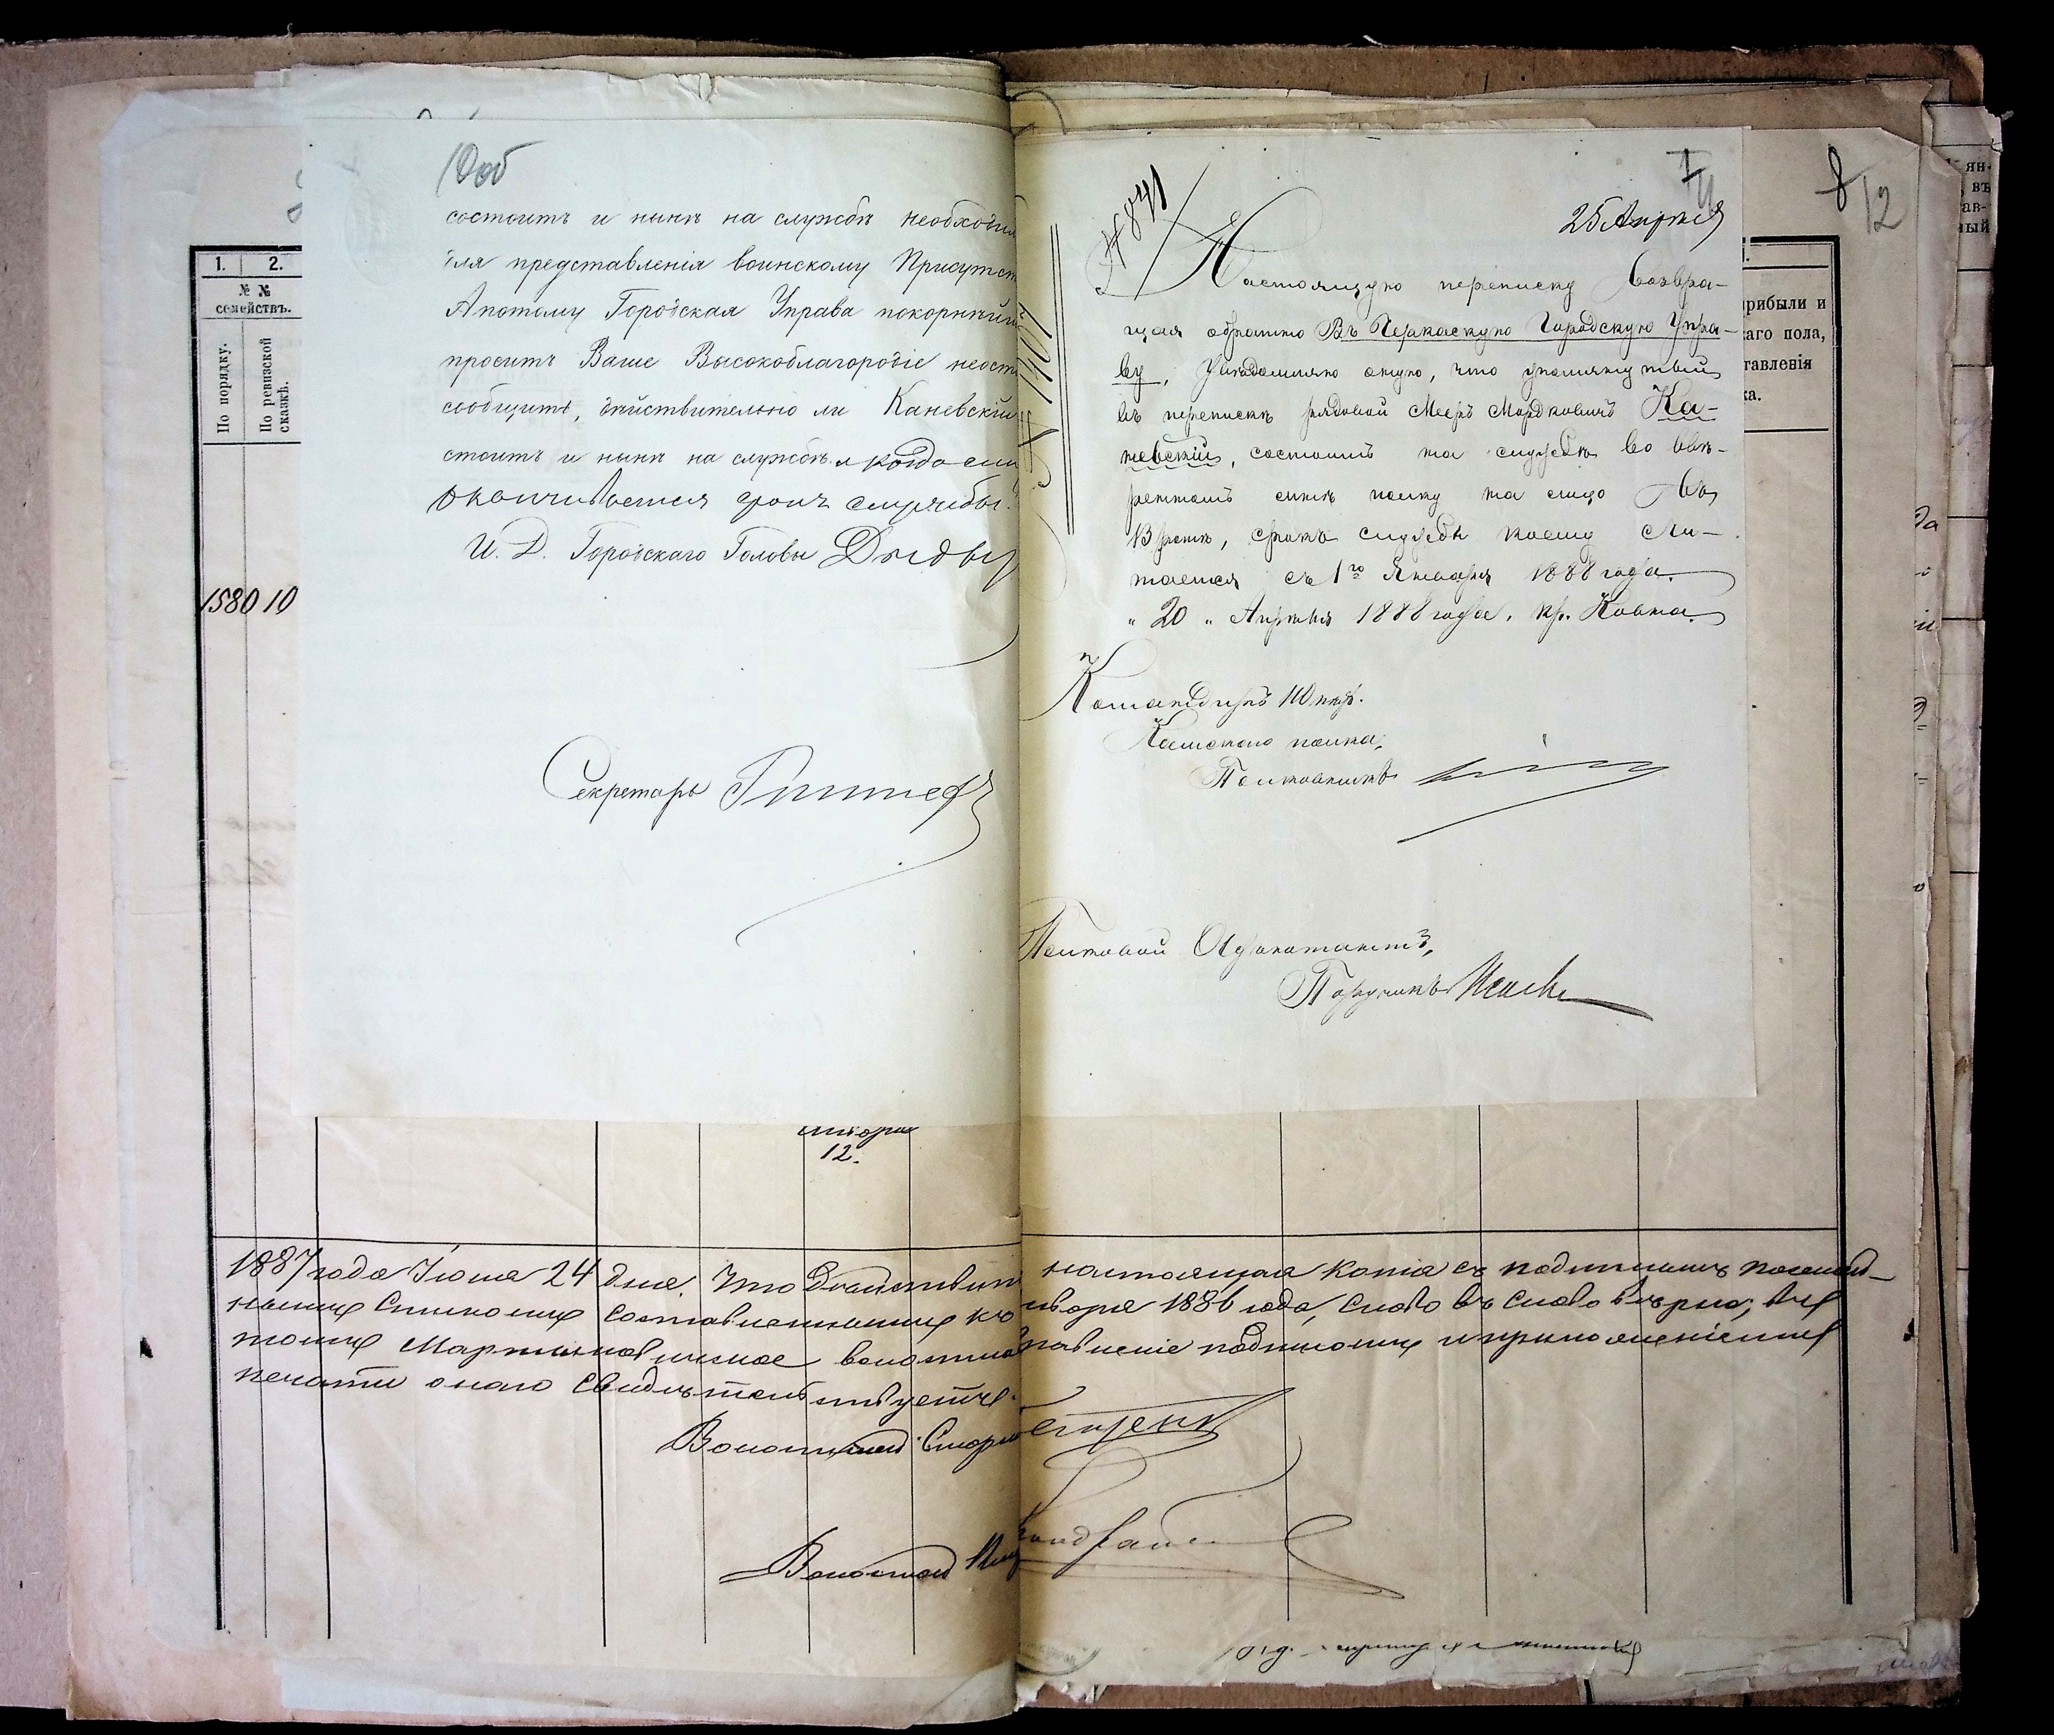 10об
состоитъ и нынѣ на службѣ необходим
для представленія воинскому Присутст
Апотому Городская Управа покорнѣйш
проситъ Ваше Высокоблагородіе неост
сообщить, дѣйствительно ли Каневскій
стоитъ и нынѣ на службѣ и когда ему
оканчивается срокъ службы.
И. Д. Городскаго Головы
Секретарь
1. 2.
№ №
семействъ.
По порядку.
По ревизской сказкѣ.
1580 10
12.
№ 871
25 Апрѣля
8
12
Настоящую переписку возвра-
щая обратно Въ Черкаскую Городскую Упра-
ву, увѣдомляю оную, что упомянутый
въ перепискѣ рядовой Мееръ Мордковичъ Ка-
невскій, состоитъ на службѣ во ввѣ-
ренномъ мнѣ полку на лицо въ
13 ротѣ, срокъ службы коему счи-
тается съ 1го Января 1888 года.
" 20 " Апрѣля 1888 года. кр. Ковна.
Командиръ 110 пѣх.
Камскаго полка,
Полковникъ
Полковой Адъютантъ,
Поручикъ
прибыли и
каго пола,
тавленія
ка.
1887 года Іюня 24 дня. Что действит настоящая копія съ подлиннымъ посемей-
нымъ Спискомъ составленнымъ къ 1886 года, слово въ слово вѣрна, въ
томъ Мартыновическое волостное правленіе подписомъ и приложеніемъ
печати онаго свидѣтельствуетъ.
Волостной Старш
Волостной Пис